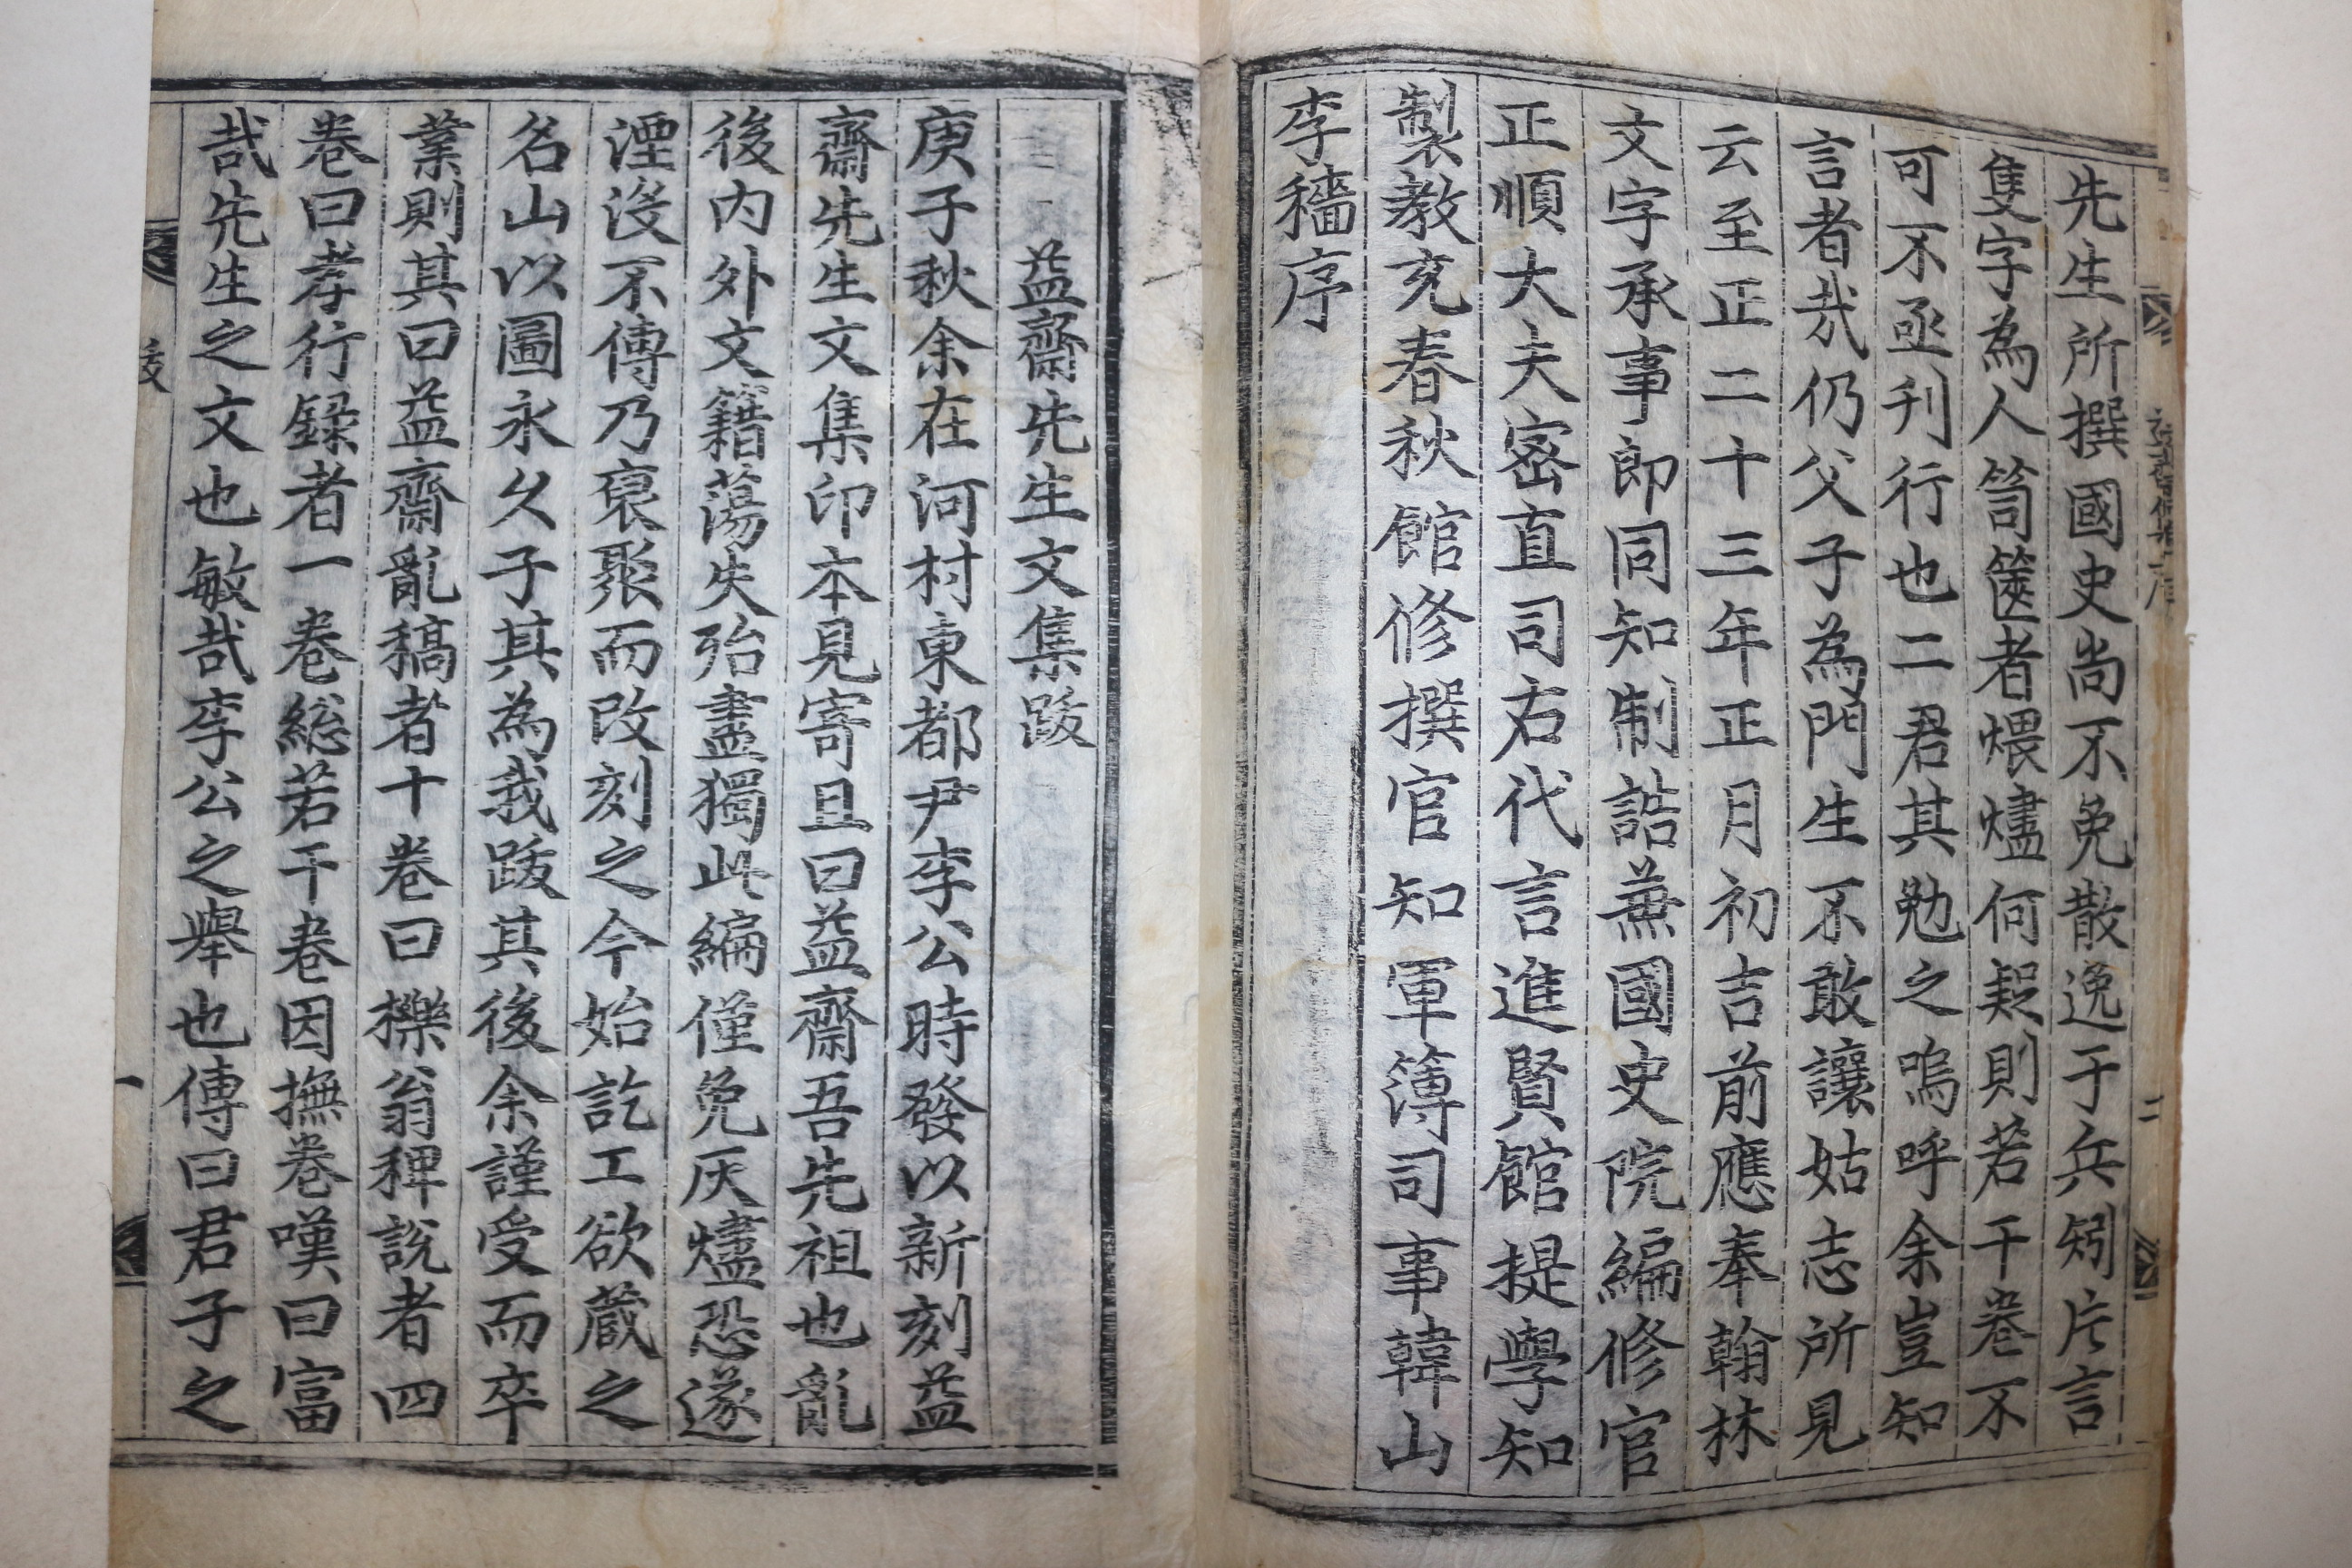 先生所撰國史尚不免散逸于兵矧片言
隻字為人笥篋者煨燼何疑則若干卷不
可不亟刊行也二君其勉之嗚呼余豈知
言者㢤仍父子為門生不敢讓姑志所見
云至正二十三年正月初吉前應奉翰林
文字承事郎同知制誥兼國史院編修官
正順大夫密直司右代言進賢館提學知
製教充春秋館修撰官知軍簿司事韓山
李穡序
益齋先生文集跋
庚子秋余在河村東都尹李公時發以新刻益
齋先生文集印本見寄且曰益齋吾先祖也亂
後內外文籍蕩失殆盡獨此編僅免灰燼恐遂
湮沒不傳乃裒聚而改刻之今始訖工欲蔵之
名山以圖永久子其為我跋其後余謹受而卒
業則其曰益齋亂稿者十卷曰櫟翁稗說者四
卷曰孝行錄者一卷総若干卷因撫卷嘆曰富
哉先生之文也敏哉李公之舉也傳曰君子之
跋
一
二